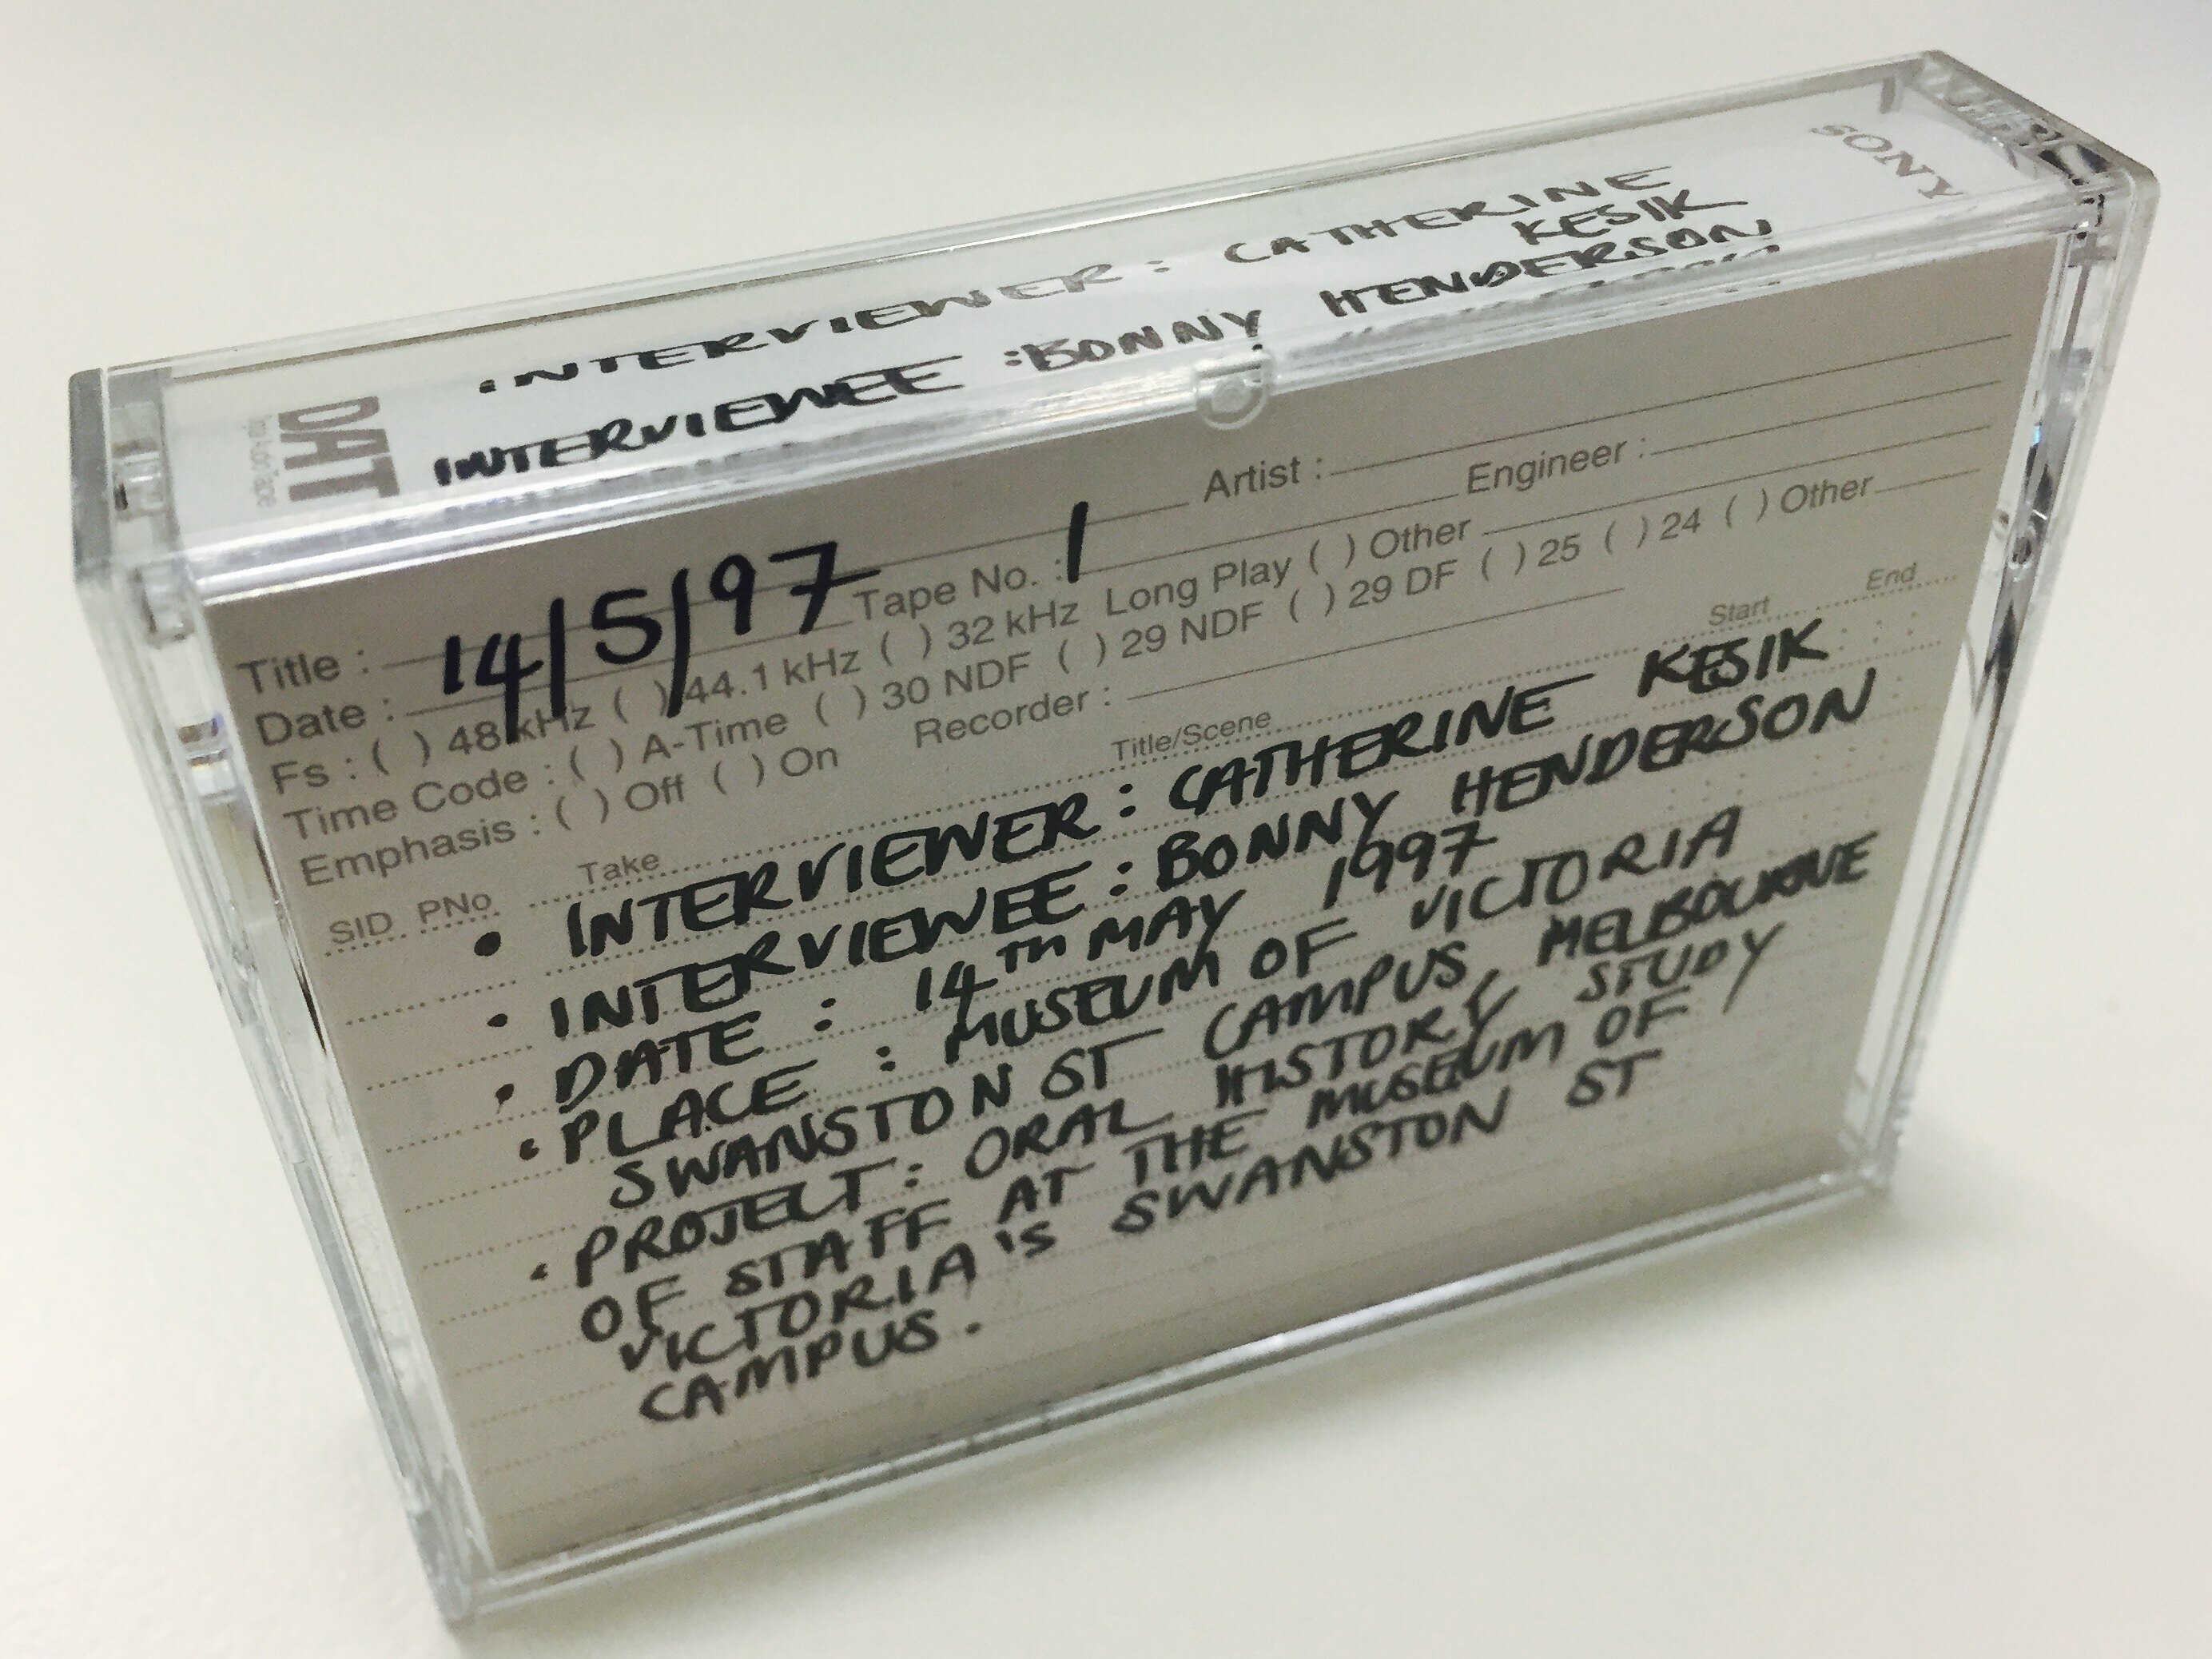 SONY
INTERVIEWER : CATHERINE
KESIK
INTERVIEWEE : BONNY HENDERSON
DAT
Title : Artist :
Date : 14/5/97 Tape No. : 1 Engineer :
Fs : ( ) 48 kHz ( ) 44.1 kHz ( ) 32 kHz Long Play ( ) Other
Time Code : ( ) A-Time ( ) 30 NDF ( ) 29 NDF ( ) 29 DF ( ) 25 ( ) 24 ( ) Other
Emphasis : ( ) Off ( ) On Recorder :
SID PNo Take Title/Scene Start End
• INTERVIEWER : CATHERINE KESIK
• INTERVIEWEE : BONNY HENDERSON
• DATE : 14TH MAY 1997
• PLACE : MUSEUM OF VICTORIA
SWANSTON ST CAMPUS, MELBOURNE
• PROJECT : ORAL HISTORY STUDY
OF STAFF AT THE MUSEUM OF
VICTORIA'S SWANSTON ST
CAMPUS.